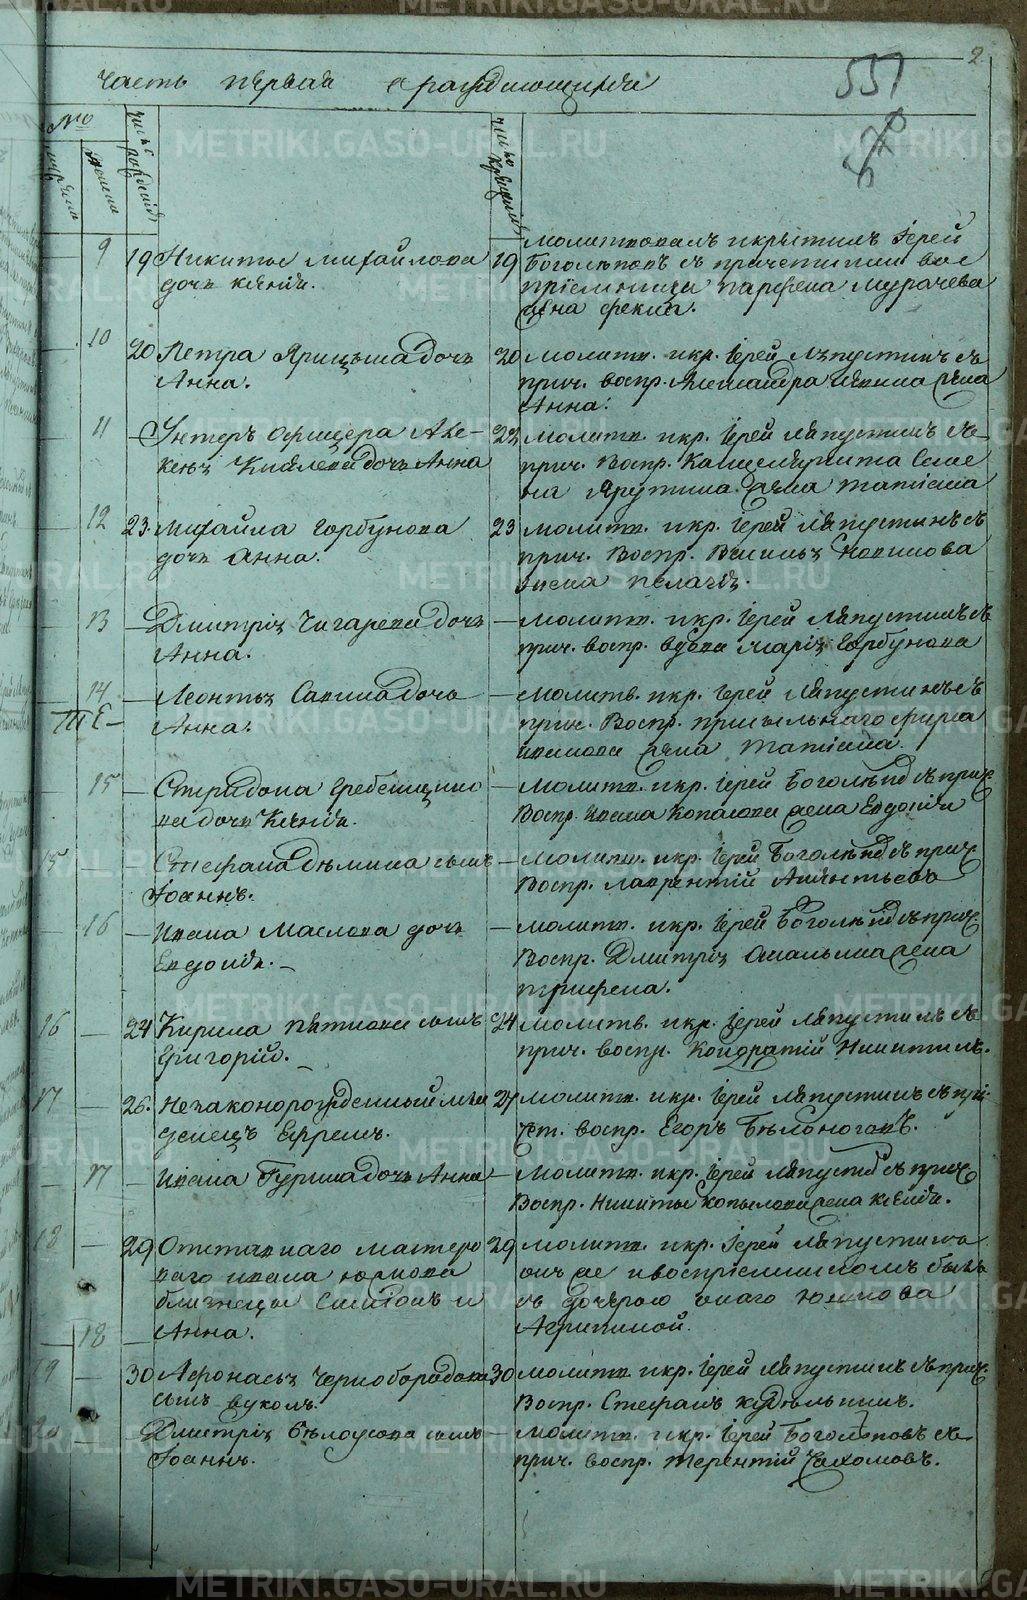 2
Часть первая о раждающихся
557
570
№
мужеска
женска
число рождения
число крещения
9 19 Никиты Михайлова
дочь Ксения.
19 молитвовалъ и крестилъ Іерей
Боголеповъ съ причетники вос
пріемница Парфена Мурачева
жена Фекла.
10 20 Петра Ярицына дочь
Анна.
20 молитв. и кр. Іерей Ляпустинъ съ
прич. воспр. Александра жена
Анна.
11 Унтеръ Офицера Але-
ксея дочь Анна
22 молитв. и кр. Іерей Ляпустинъ съ
прич. Воспр. Канцеляриста Семе
на Ярутина жена Татіана
12 23. Михайла Горбунова
дочь Анна.
23 молитв. и кр. Іерей Ляпустинъ съ
прич. Воспр. Василья
жена Пелагія.
13 Дмитрія Чигарева дочь
Анна.
молитв. и кр. Іерей Ляпустинъ съ
прич. воспр. вдова Марія Горбунова
14 Леонтья Савина дочь
Анна.
молитв. и кр. Іерей Ляпустинъ съ
прич. Воспр. присыльнаго Фирса
жена Татіана.
15 Спиридона Гребенщико
ва дочь Ксенія.
молитв. и кр. Іерей Боголеп съ прич.
Воспр. Ивана Копалова жена Евдокія
15 Стефана Демина сынъ
Іоаннъ.
молитв. и кр. Іерей Боголеп съ прич.
Воспр. Лаврентій
16 Ивана Маслова дочь
Евдокия.
молитв. и кр. Іерей Боголеп съ прич.
Воспр. Дмитрія жена
Трифена.
16 24 Кирила Пяткова сынъ
Григорій.
24 молитв. и кр. Іерей Ляпустинъ съ
прич. воспр. Кондратій Никитинъ.
17 26. Незаконорожденный мла
денецъ Ефремъ.
27 молитв. и кр. Іерей Ляпустинъ съ при
чет. воспр. Егоръ Белоноговъ.
17 Ивана Гурина дочь Анна
молитв. и кр. Іерей Ляпустин съ прич.
Воспр. Никиты Копылова жена Ксения.
18 29 Отставнаго мастеро
ваго Ивана Юркова
близнецы и
18 Анна.
29 молитв. и кр. Іерей Ляпустинъ
онъ же и воспріемникомъ былъ
съ дочерью онаго Юркова
Агрипиной.
19 30 Афонасья Чернобородова
сынъ Вуколъ.
30 молитв. и кр. Іерей Ляпустинъ съ прич.
Воспр. Стефанъ
20 Дмитрія Белоусова сынъ
Іоаннъ.
молитв. и кр. Іерей Боголеповъ съ
прич. воспр. Терентій Пахомовъ.
METRIKI.GASO-URAL.RU